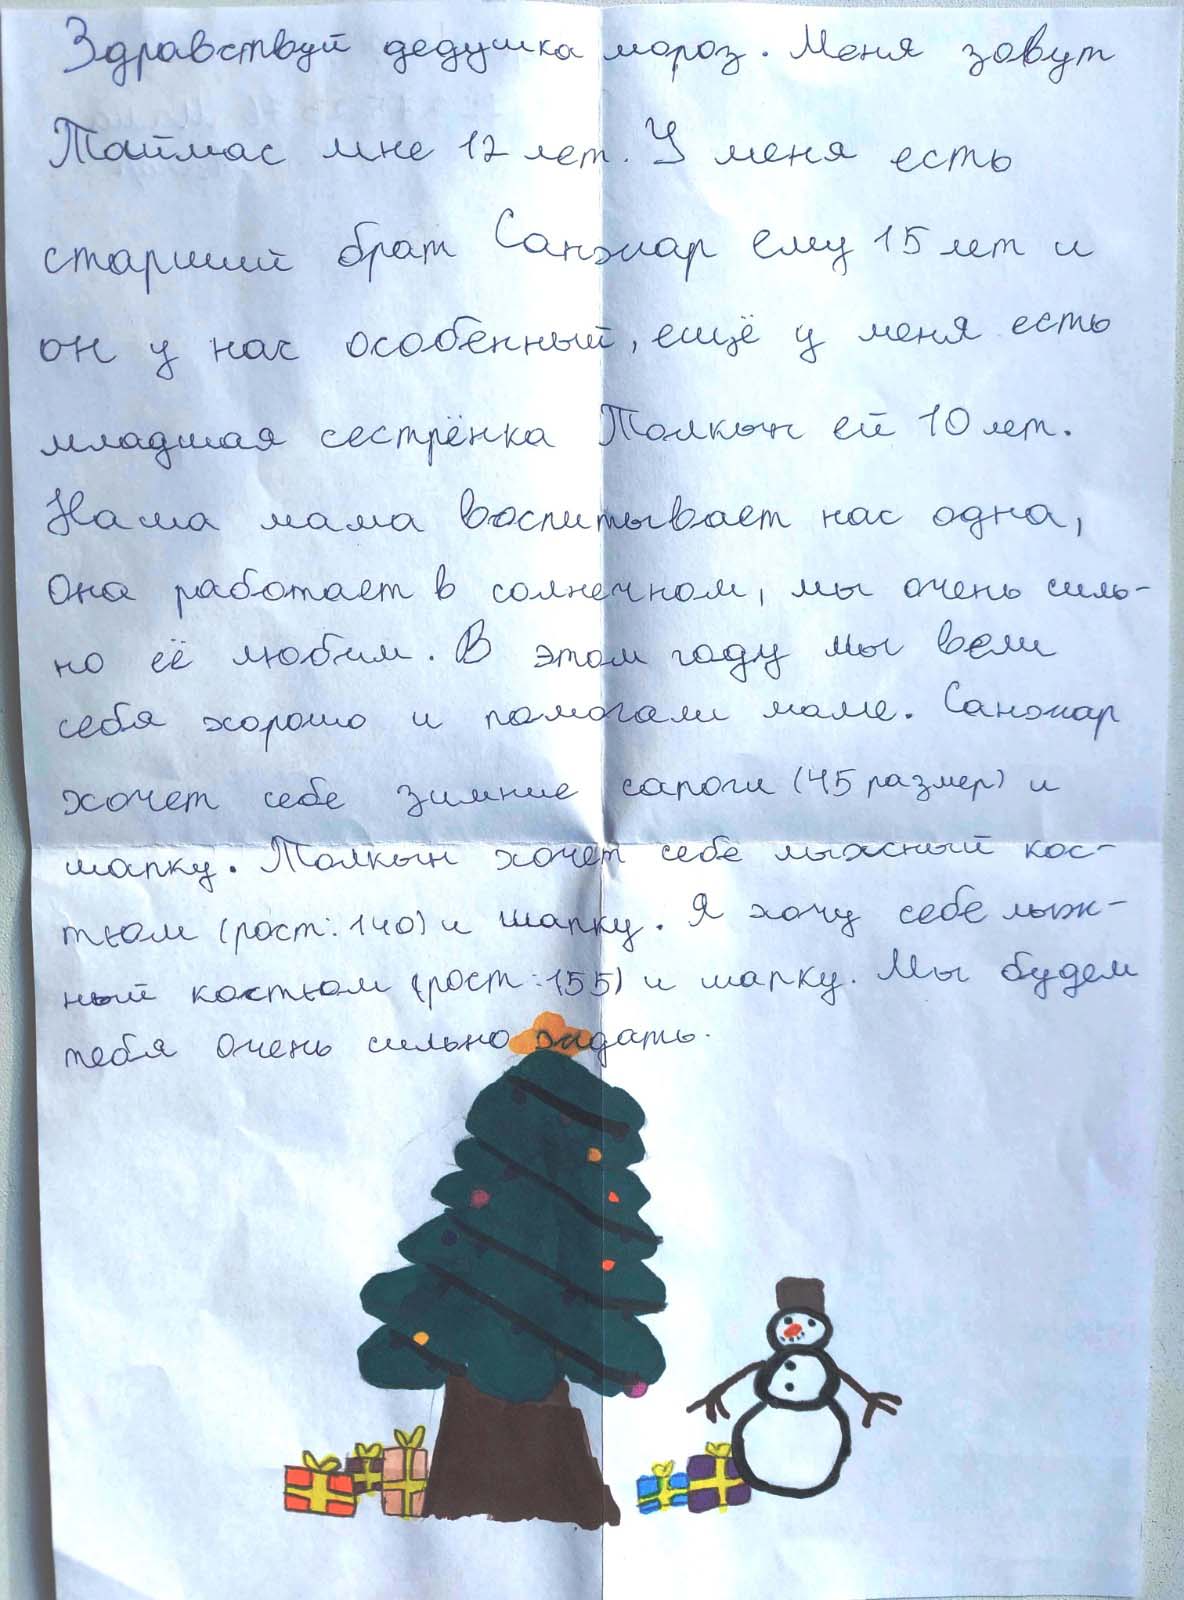 Здравствуй дедушка мороз. Меня зовут
Таймас мне 12 лет. У меня есть
старший брат Санжар ему 15 лет и
он у нас особенный, ещё у меня есть
младшая сестрёнка Толкын ей 10 лет.
Наша мама воспитывает нас одна,
Она работает в солнечном, мы очень силь-
но её любим. В этом году мы вели
себя хорошо и помогали маме. Санжар
хочет себе зимние сапоги (45 размер) и
шапку. Толкын хочет себе лыжный кос-
тюм (рост: 140) и шапку. Я хочу себе лыж-
ный костюм (рост: 155) и шапку. Мы будем
тебя очень сильно ждать.